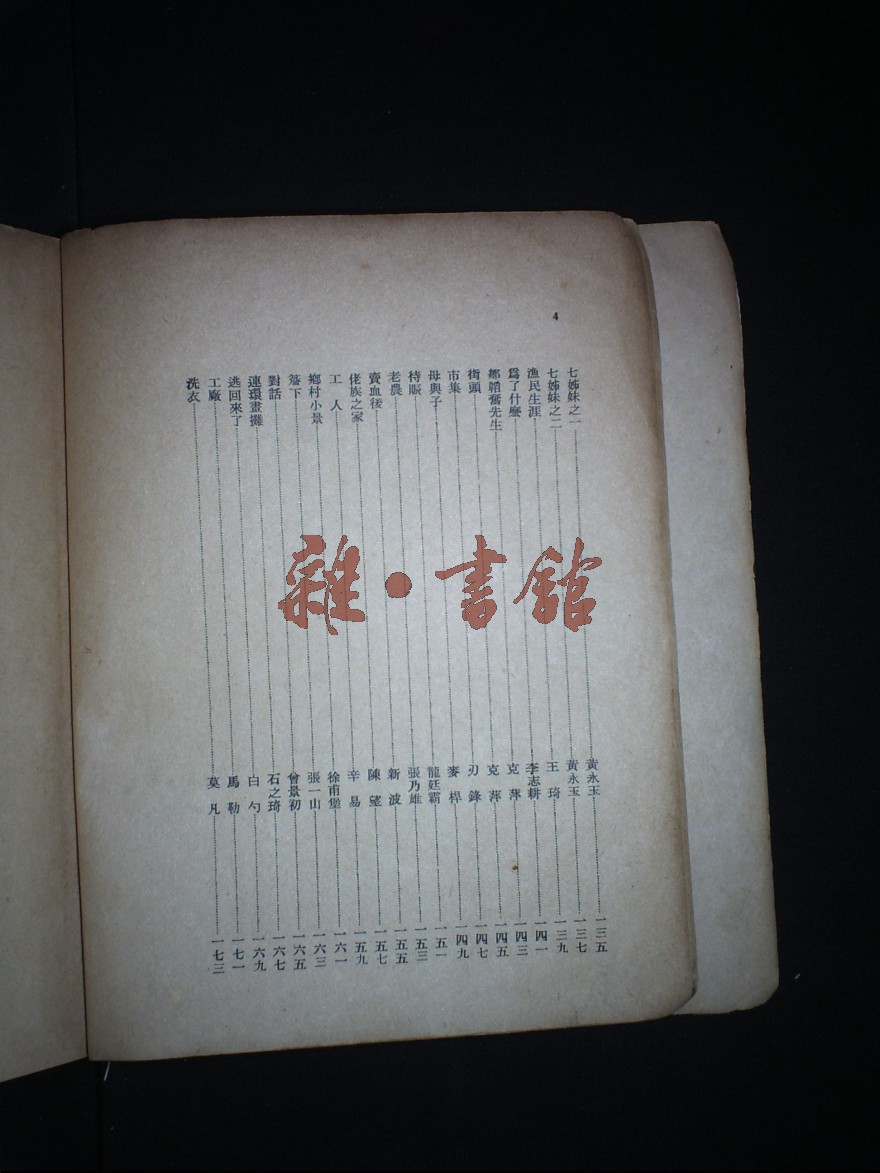 4
七姊妹之一 黃永玉 一三五
七姊妹之二 黃永玉 一三七
漁民生涯 王琦 一三九
爲了什麼 李志耕 一四一
鄒韜奮先生 克萍 一四三
街頭 克萍 一四五
市集 刃鋒 一四七
母與子 麥桿 一四九
待賑 龍廷霸 一五一
老農 張乃雄 一五三
賣血後 新波 一五五
佬族之家 陳望 一五七
工人 辛易 一五九
鄉村小景 徐甫堡 一六一
簷下 張一山 一六三
對話 曾景初 一六五
連環畫攤 石之琦 一六七
逃回來了 白勺 一六九
工廠 馬勒 一七一
洗衣 莫凡 一七三
雜·書館